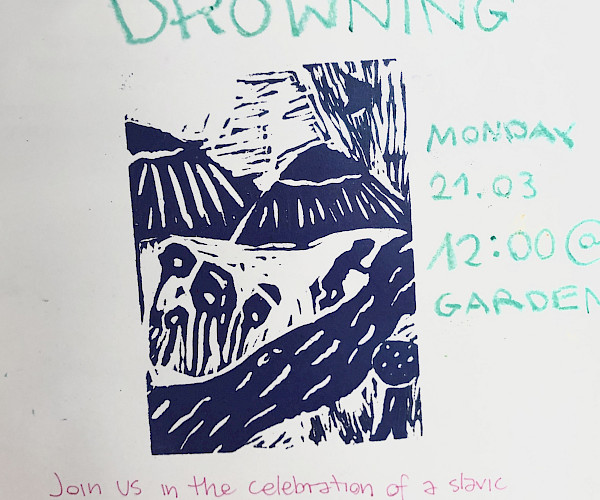 DROWNING
MONDAY
21.03
12:00 @
GARDEN
Join us in the celebration of a slavic